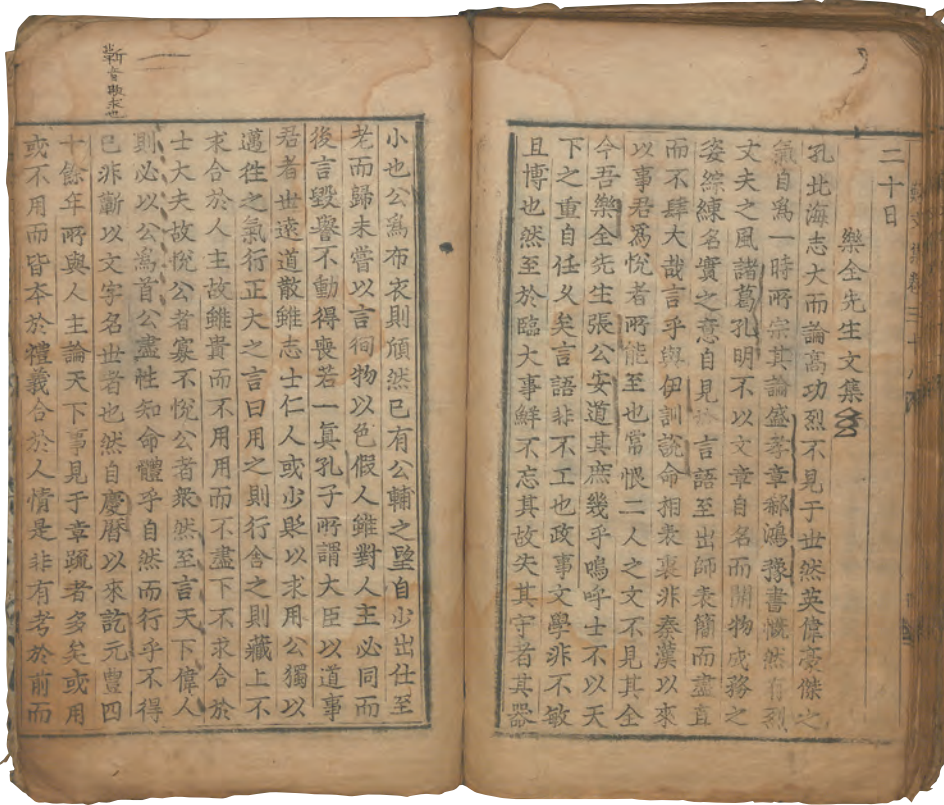 二十日
樂全先生文集叙
孔北海志大而論高功烈不見于世然英偉豪傑之
氣自爲一時所宗其論盛孝章郗鴻豫書慨然有烈
丈夫之風諸葛孔明不以文章自名而開物成務之
姿綜練名實之意自見於言語至出師表簡而盡直
而不肆大哉言乎與伊訓說命相表裏非秦漢以來
以事君爲悅者所能至也常恨二人之文不見其全
今吾樂全先生張公安道其庶幾乎嗚呼士不以天
下之重自任乆矣言語非不工也政事文學非不敏
且博也然至於臨大事鮮不忘其故失其守者其器
小也公爲布衣則頎然已有公輔之望自少出仕至
老而歸未嘗以言徇物以色假人雖對人主必同而
後言毀譽不動得喪若一眞孔子所謂大臣以道事
君者世遠道散雖志士仁人或少貶以求用公獨以
邁往之氣行正大之言曰用之則行舍之則藏上不
求合於人主故雖貴而不用用而不盡下不求合於
士大夫故悅公者寡不悅公者衆然至言天下偉人
則必以公爲首公盡性知命體乎自然而行乎不得
已非蘄以文字名世者也然自慶曆以來訖元豐四
十餘年所與人主論天下事見于章疏者多矣或用
或不用而皆本於禮義合於人情是非有考於前而